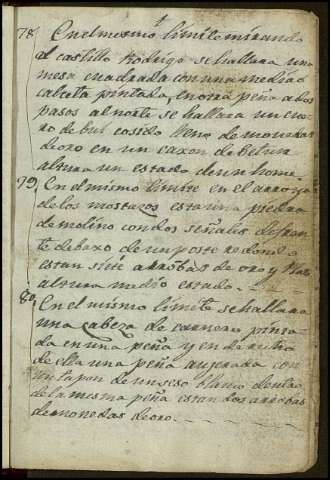 78, En el mesmo límite mirando
al castillo Rodrigo se hallara una
mesa cuadrada con una media
calceta pintada, en otra peña a dos
pasos al norte se hallara un cue-
ro de buei cosido lleno de monedas
de oro en un caxon de betun
altura un estado de un home.
79, En el mismo límite en el arroyo
de los mostazos esta una piedra
de molino con dos señales de frente
te debaxo de un poste redondo
estan siete arrobas de oro y
altura medio estado.
80, En el mismo límite se hallara
una cabeza de carnero pinta-
da en una peña y en derecho
de ella una peña aujerada con
un tapon de un seso blanco dentro
de la mesma peña estan dos arrobas
de monedas de oro.